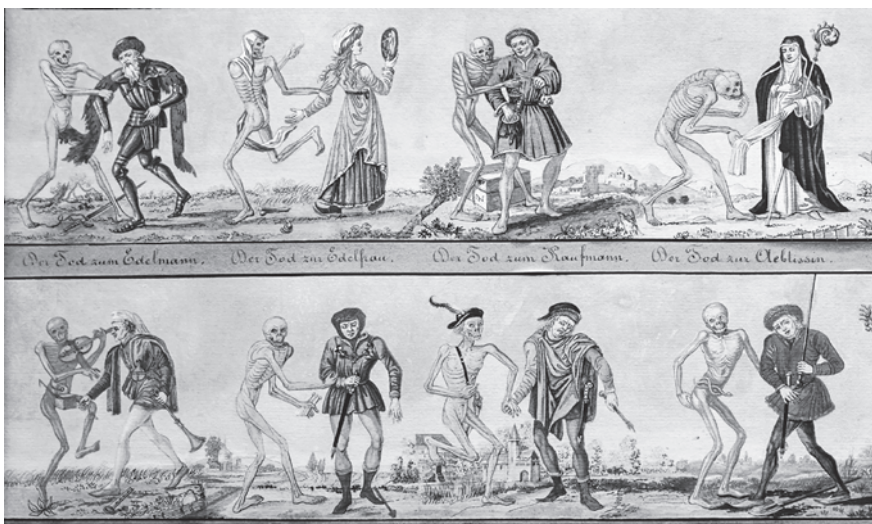 Der Tod zum Edelmann. Der Tod zur Edelfrau. Der Tod zum Kaufmann. Der Tod zur Aebtissin.